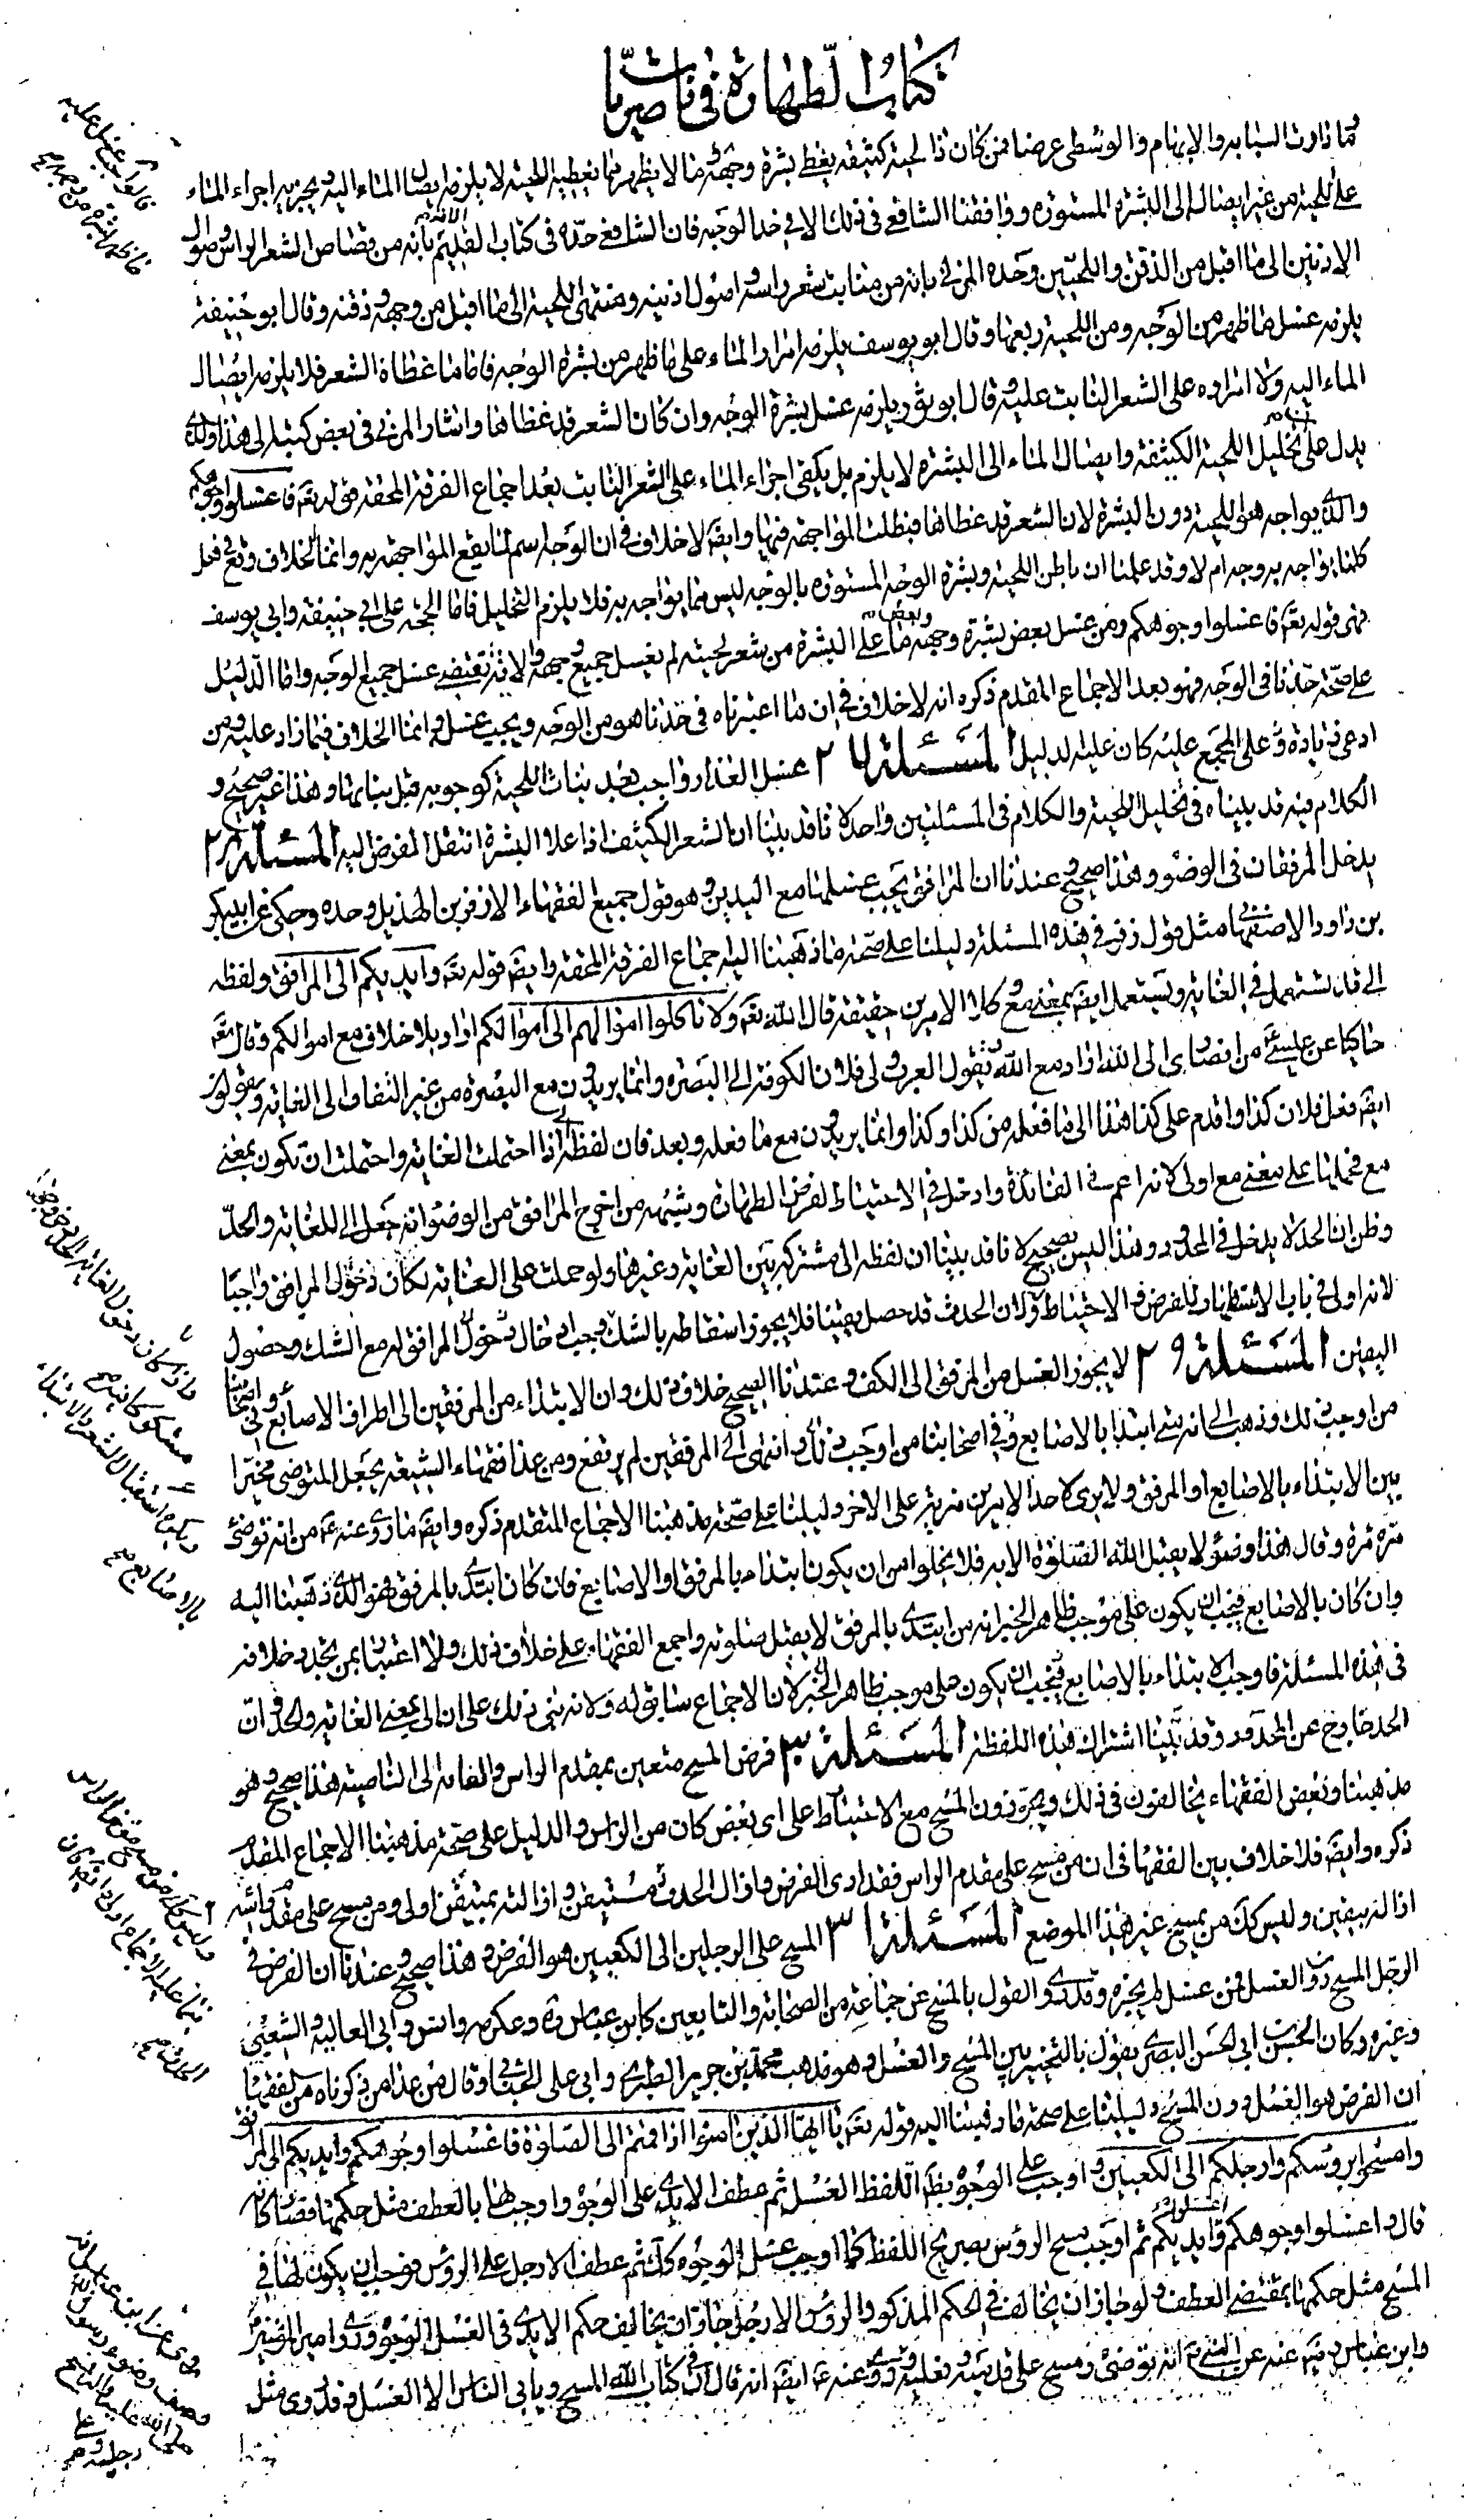 كتاب الطهارة في ناصريات
ما دارت السبابه والإبهام والوسطى عرضا فمن كان ذا لحية كثيفة يغطي بشرة وجهه وما لا يظهر مما تغطيه اللحية لا يلزمه ايصال الماء اليه ويجزيه اجراء الماء
على اللحية من غير ايصاله إلى البشرة المستورة ووافقنا الشافعي في ذلك الا في حد الوجه فان الشافعي حده في كتاب الام بأنه من قصاص الشعر الراس واصول
الاذنين الى ما اقبل من الذقن واللحيين وحده المزني بانه من منابت شعر راسه واصول اذنيه ومنتهى اللحية الى ما اقبل من وجهه وذقنه وقال ابو حنيفة
يلزمه غسل ما ظهر من الوجه ومن اللحية ربعها وقال ابو يوسف يلزمه امرار الماء على ما ظهر من بشرة الوجه فاما ما غطاه الشعر فلا يلزمه ايصال
الماء اليه ولا امراره على الشعر النابت عليه وقال ابو ثور يلزمه غسل بشرة الوجه وان كان الشعر قد غطاها واشار المزني في بعض كتبه الى هذا والذي
يدل على ان تخليل اللحية الكثيفة وايصال الماء الى البشرة لا يلزم بل يكفى اجراء الماء على الشعر النابت بعد اجماع الفرقة المحقة قوله تعه فاغسلوا وجوهكم
والذي يواجه هو اللحية دون البشرة لان الشعر قد غطاها فبطلت المواجهة فيها وايضه لا خلاف في ان الوجه اسم لما يقع المواجهة به وانما الخلاف وقع في هل
كلما يواجه به وجه ام لا وقد علمنا ان باطن اللحية وبشرة الوجه المستورة بالوجه ليس مما يواجه به فلا يلزم التخليل فاما الحجة على ابي حنيفة وابي يوسف
فهي قوله تعه فاغسلوا وجوهكم ومن غسل بعض بشرة وجهه وبعض ما على البشرة من شعر لحيته لم يغسل جميع وجهه والاية تقتضي غسل جميع الوجه واما الدليل
على صحة حدنا في الوجه فهو بعد الاجماع المقدم ذكره انه لا خلاف في ان ما اعتبرناه في حدنا هو من الوجه ويجب غسله وانما الخلاف فيما زاد عليه ومن
ادعى زيادة على المجمع عليه كان عليه الدليل المسئلة ٢٧ غسل العذار واجب بعد نبات اللحية كوجوبه قبل نباتها وهذا غير صحيح و
الكلام فيه قد بيناه في تخليل اللحية والكلام في المسئلتين واحد لانا قد بينا ان الشعر الكثيف اذا علا البشرة انتقل الفرض اليه المسئلة ٢٨
يدخل المرفقان في الوضوء وهذا صحيح وعندنا ان المرافق يجب غسلها مع اليدين وهو قول جميع الفقهاء الا زفر بن الهذيل وحده وحكى عن ابي بكر
بن داود الاصفهاني مثل قول زفر في هذه المسئلة دليلنا على صحة ما ذهبنا اليه اجماع الفرقة المحقة وايضه قوله تعه وايديكم الى المرافق ولفظه
الى قد تستعمل في الغاية ويستعمل ايضه بمعنى مع وكلا الامرين حقيقة قال الله تعه ولا تاكلوا اموالهم الى اموالكم اراد بلا خلاف مع اموالكم وقال تعه
حاكيا عن عيسى من انصارى الى الله اراد مع الله وتقول العرب ولى فلان الكوفة الى البصرة وانما يريدون مع البصرة من غير التفات الى الغاية ويقولون
ايضه فعل فلان كذا واقدم على كذا هذا الى ما فعله من كذا وكذا وانما يريدون مع ما فعله وبعد فان لفظة الى اذا احتملت الغاية واحتملت ان تكون بمعنى
مع فحملها على معنى مع اولى لانه اعم في الفائدة وادخل في الاحتياط لفرض الطهارة وشبهة من اخرج المرافق من الوضوء انه جعل الى للغاية والحد
وظن ان الحد لا يدخل في المحدود وهذا ليس بصحيح لانا قد بينا ان لفظة الى مشتركة بين الغاية وغيرها ولو حملت على الغاية لكان دخول المرافق واجبا
لانه اولى في باب الاستظهار للفرض والاحتياط ولان الحدث قد حصل يقينا فلا يجوز اسقاطه بالشك فيجب ادخال المرافق مع الشك وحصول
اليقين المسئلة ٢٩ لا يجوز الغسل من المرفق الى الكف وعندنا الصحيح خلاف ذلك وان الابتداء من المرفقين الى اطراف الاصابع وفي اصحابنا
من اوجب ذلك وذهب الى انه متى ابتدا بالاصابع وانتهى الى المرفقين لم يرتفع ومن عدا فقهاء الشيعة يجعل المتوضى مخيرا
بين الابتداء بالاصابع او المرفق ولا يرى لاحد الامرين مزية على الاخر ودليلنا على صحة مذهبنا الاجماع المتقدم ذكره وايضه ما روي عنه ع من انه توضى
مرة مرة وقال هذا وضوء لا يقبل الله الصلوة الا به فلا يخلو من ان يكون ابتداء بالمرفق او الاصابع فان كان ابتدى بالمرفق فهو الذي ذهبنا اليه
وان كان بالاصابع فيجب ان يكون على موجب ظاهر الخبر انه من ابتدى بالمرفق لا يقبل صلوته واجمع الفقهاء على خلاف ذلك ولا اعتبار بمن تجدد خلافه
في هذه المسئلة فاوجب الابتداء بالاصابع فيجب ان يكون على موجب ظاهر الخبر لان الاجماع سابق له ولانه بنى ذلك على ان الى بمعنى الغاية والحد وان
الحد خارج عن المحدود وقد بينا اشتراك هذه اللفظة المسئلة ٣٠ فرض المسح متعين بمقدم الراس والغاية الى الناصية هذا صحيح وهو
مذهبنا وبعض الفقهاء يخالفون في ذلك ويجوزون المسح مع الاحتياط على اى بعض كان من الراس والدليل على صحة مذهبنا الاجماع المقدم
ذكره وايضه فلا خلاف بين الفقهاء في ان من مسح على مقدم الراس فقد ادى الفرض وازال الحدث وازالته بمتيقن اولى ومن مسح على مقدم راسه
ازاله بيقين وليس كك من يمسح غير هذا الموضع المسئلة ٣١ المسح على الرجلين الى الكعبين هو الفرض وهذا صحيح وعندنا ان الفرض في
الرجل المسح دون الغسل فمن غسل لم يجزه وقد روى القول بالمسح عن جماعة من الصحابة والتابعين كابن عباس ره وعكرمه وانس وابي العالية والشعبي
وغيره وكان الحسن بن ابي الحسن البصري يقول بالتخيير بين المسح والغسل وهو مذهب محمد بن جرير الطبري وابي على الجبائي وقال من عدا من ذكرناه من الفقهاء
ان الفرض هو الغسل دون المسح دليلنا على صحة ما ذهبنا اليه قوله تعه يا ايها الذين امنوا اذا قمتم الى الصلوة فاغسلوا وجوهكم وايديكم الى المرافق
وامسحوا برؤسكم وارجلكم الى الكعبين واوجب على الوجوه بظاهر اللفظ الغسل ثم عطف الايدى على الوجوه واوجب لها بالعطف مثل حكمها فصار كانه
قال واغسلوا وجوهكم واغسلوا ايديكم ثم اوجب مسح الرؤس بصريح اللفظ كما اوجب غسل الوجوه كك ثم عطف الارجل على الرؤس فوجب ان يكون لها في
المسح مثل حكمها بمقتضى العطف ولو جاز ان يخالف في الحكم المذكور الرؤس الارجل جاز ان يخالف حكم الايدى في الغسل الوجوه وروى امير المؤمنين
وابن عباس رضيه عنه عن النبي ص انه توضى ومسح على قدميه ونعليه وروى عنه ع ايضه انه قال ان في كتاب الله المسح ويابى الناس الا الغسل وقد روى مثل